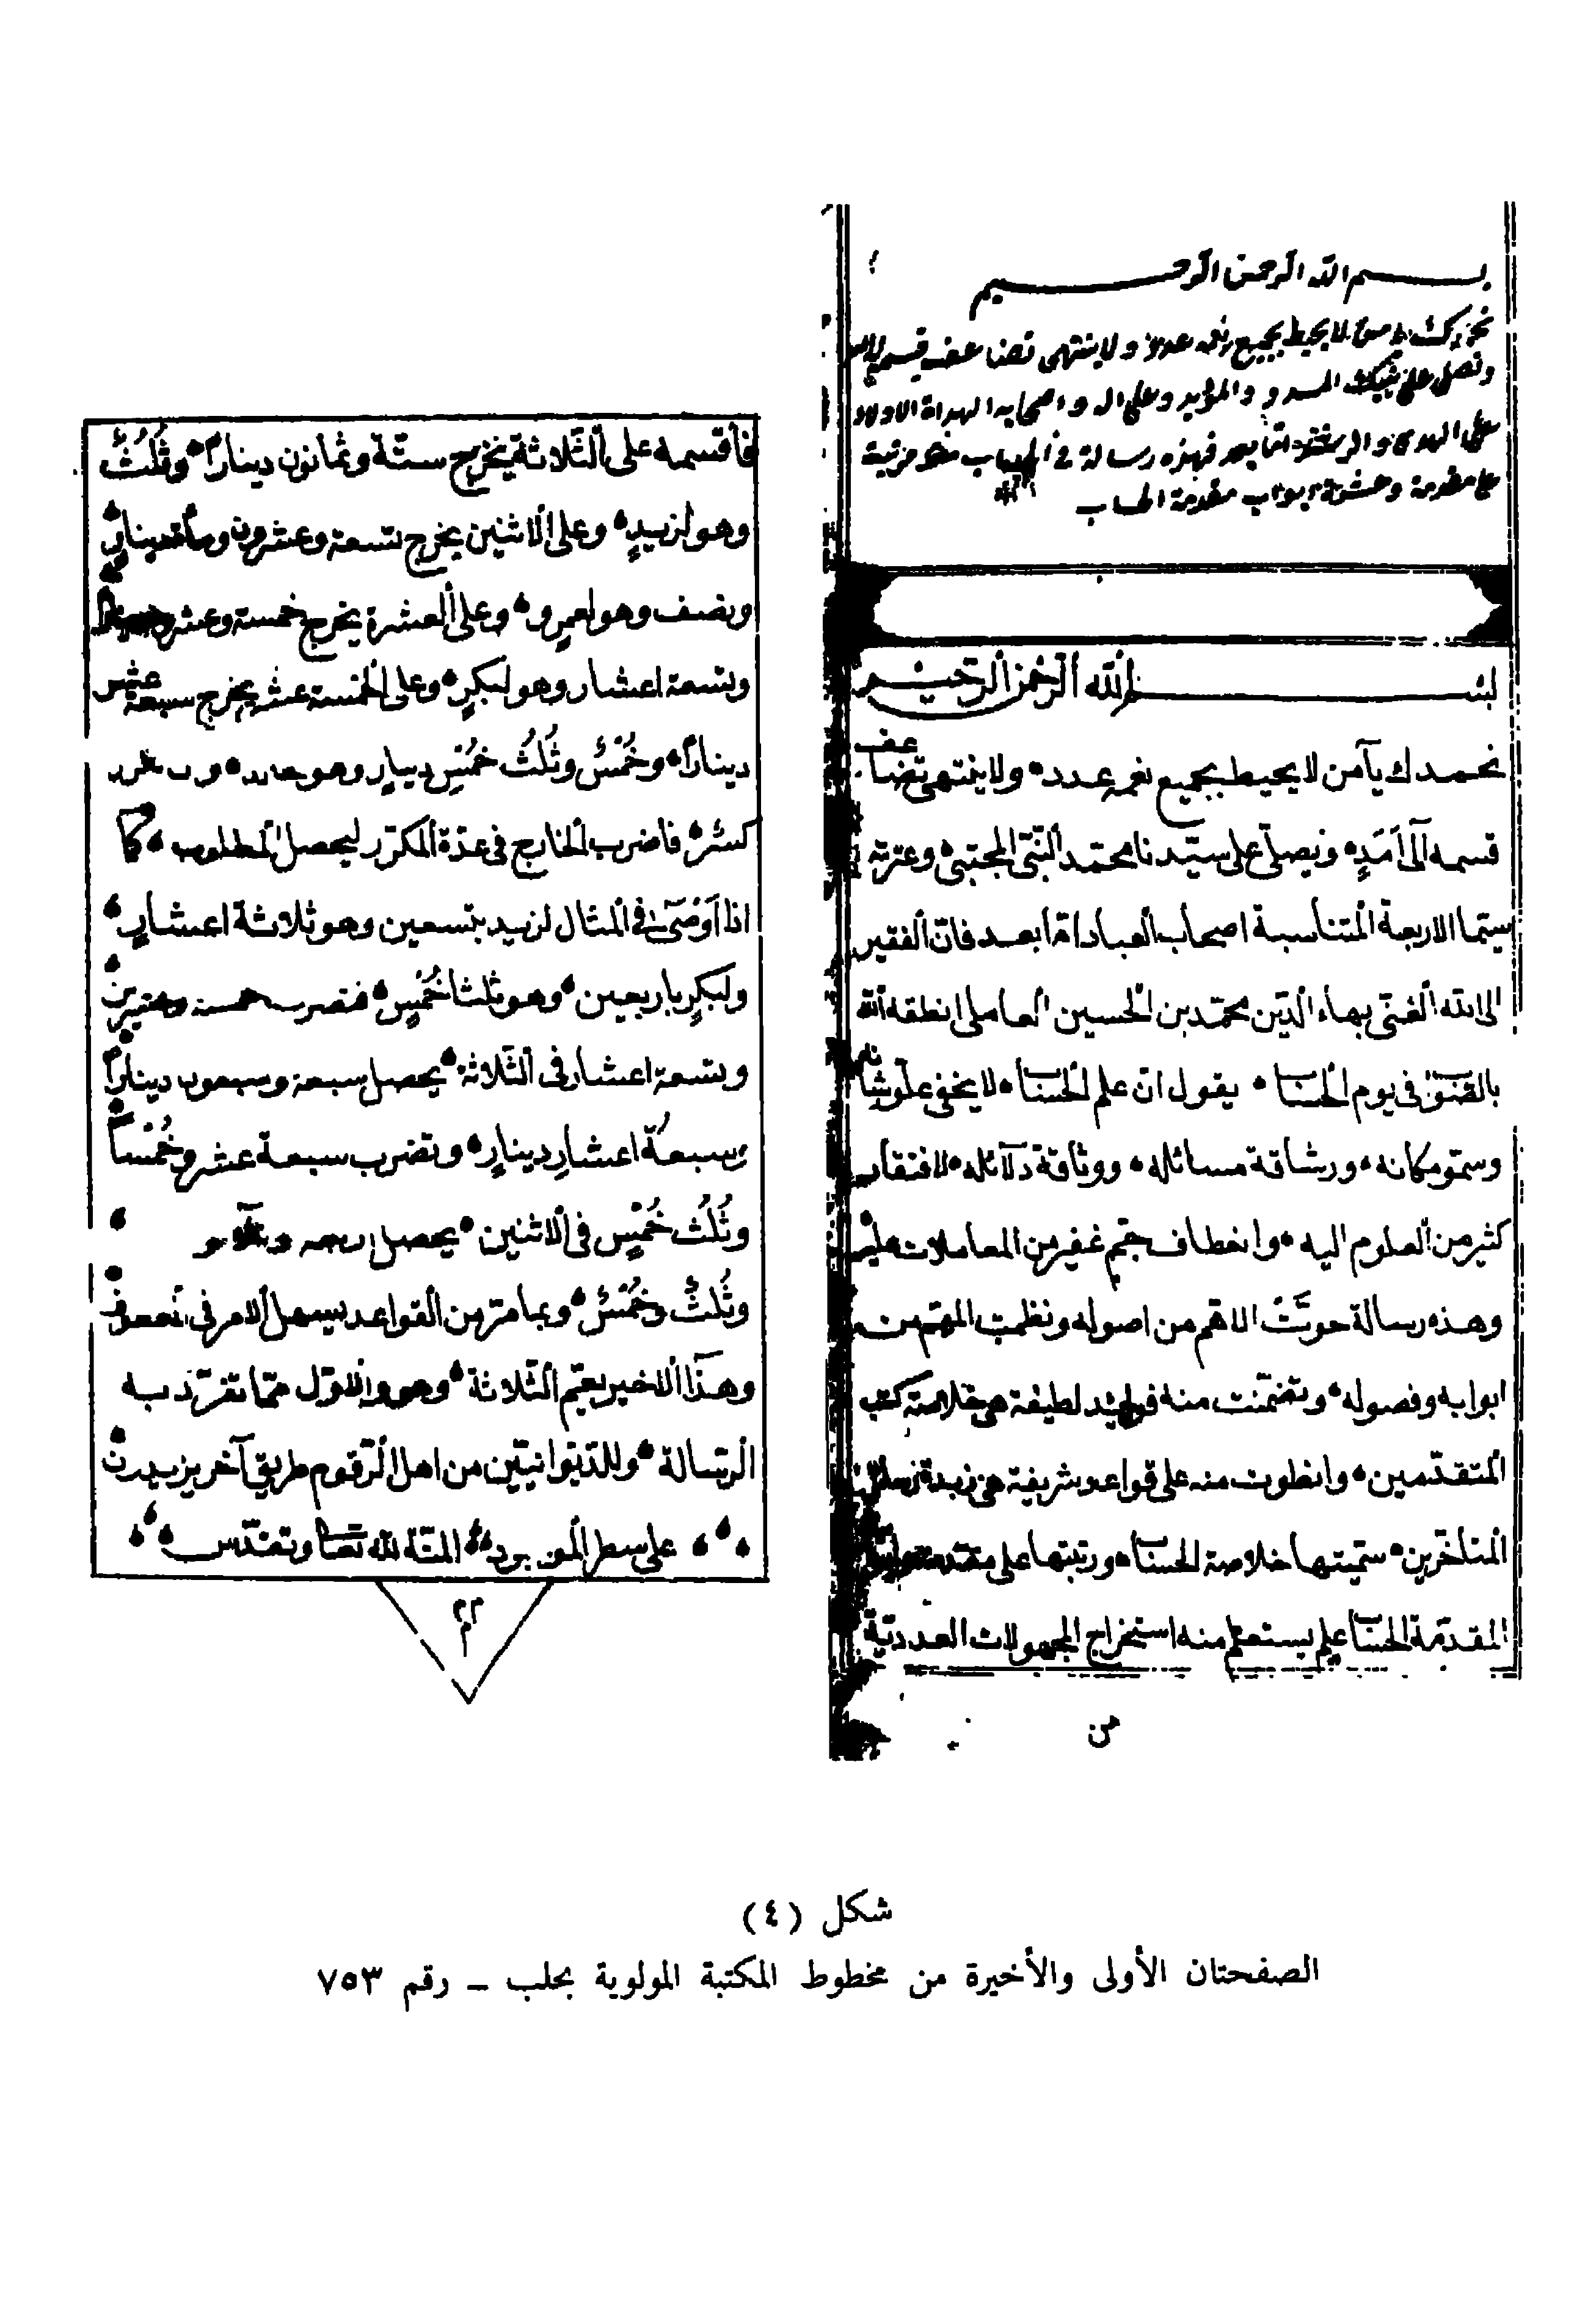 بسم الله الرحمن الرحيم
نحمدك يا من لا يحيط بجميع نعمه عدد ولا ينتهى تضاعف قسمه
ونصلى على نبيك وعلى اله واصحابه الهداة
على الهدى و اما بعد فهذه رسالة في الحساب مرتبة
على مقدمة وعشرة ابواب مقدمة الحساب
بسم الله الرحمن الرحيم
نحمدك يا من لا يحيط بجميع نعمه عدد ولا ينتهى تضاعف
قسمه الى امد ونصلى على سيدنا محمد النبي المجتبى وعترته
سيما الاربعة المتناسبة اصحاب العبا اما بعد فان الفقير
الى الله الغني بهاء الدين محمد بن الحسين العاملى انطقه الله
بالصواب فى يوم الحساب يقول ان علم الحساب لا يخفى علو شانه
وسمو مكانه ورشاقة مسائله ووثاقة دلآئله لافتقار
كثير من العلوم اليه وانعطاف جم غفير من المعاملات عليه
وهذه رسالة حوت الاهم من اصوله ونظمت المهم من
ابوابه وفصوله وتضمنت منه فوائد لطيفة هى خلاصة كتب
المتقدمين وانطوت منه على قواعد شريفة هى زبدة رسائل
المتاخرين سميتها خلاصة الحساب ورتبتها على مقدمة
المقدمة الحساب علم يستعلم منه استخراج المجهولات العددية
من
فأقسمه على الثلاثة يخرج ستة وثمانون دينارا وثلث
وهو لزيد وعلى الاثنين يخرج تسعة وعشرون ومأة دينار
ونصف وهو لعمرو وعلى العشرة يخرج خمسة وعشرون
وتسعة اعشار وهو لبكر وعلى الخمسة عشر يخرج سبعة عشر
دينارا وخمس وثلث خمس دينار وهو
كسره فاضرب الخارج فى عدة المكرر ليحصل المطلوب كما
اذا اوصى فى المثال لزيد بتسعين وهو ثلاثة اعشار
ولبكر باربعين وهو ثلثا خمس فتضرب خمسة وعشرين
وتسعة اعشار فى الثلاثة يحصل سبعة وسبعون دينارا
وسبعة اعشار دينار وتضرب سبعة عشر وخمسا
وثلث خمس فى الاثنين يحصل اربعة وثلاثون
وثلث وخمس وبما مر من القواعد يسهل الامر فى
وهذا الاخير يعم الثلاثة وهو والاول مما تفرد به
الرسالة وللديوانيين من اهل الرقوم طريق آخر
على سطر المنة لله تعا وتقدس
م م م
شكل (٤)
الصفحتان الأولى والأخيرة من مخطوط المكتبة المولوية بحلب ــ رقم ٧٥٣